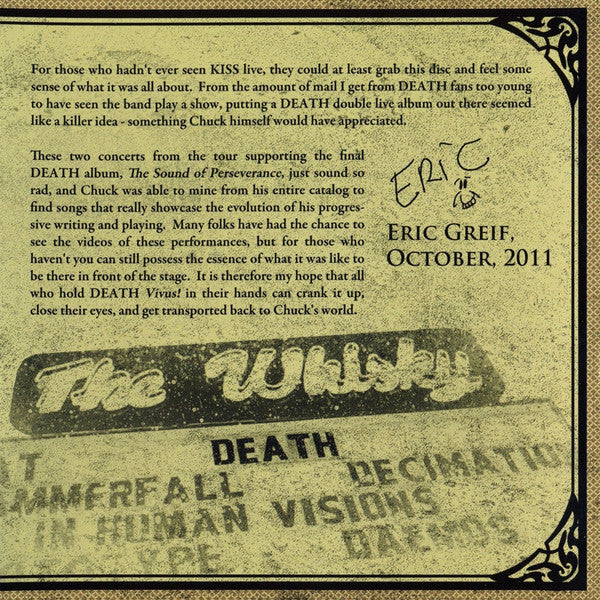 For those who hadn't ever seen KISS live, they could at least grab this disc and feel some
sense of what it was all about. From the amount of mail I get from DEATH fans too young
to have seen the band play a show, putting a DEATH double live album out there seemed
like a killer idea - something Chuck himself would have appreciated.
These two concerts from the tour supporting the final
DEATH album, The Sound of Perseverance, just sound so
rad, and Chuck was able to mine from his entire catalog to
find songs that really showcase the evolution of his progres-
sive writing and playing. Many folks have had the chance to
see the videos of these performances, but for those who
haven't you can still possess the essence of what it was like to
be there in front of the stage. It is therefore my hope that all
who hold DEATH Vivus! in their hands can crank it up,
close their eyes, and get transported back to Chuck's world.
ERIC
ERIC GREIF,
OCTOBER, 2011
The Whisky
AT DEATH
AMMERFALL DECIMATIO
IN HUMAN VISIONS
YPE DAEMOS